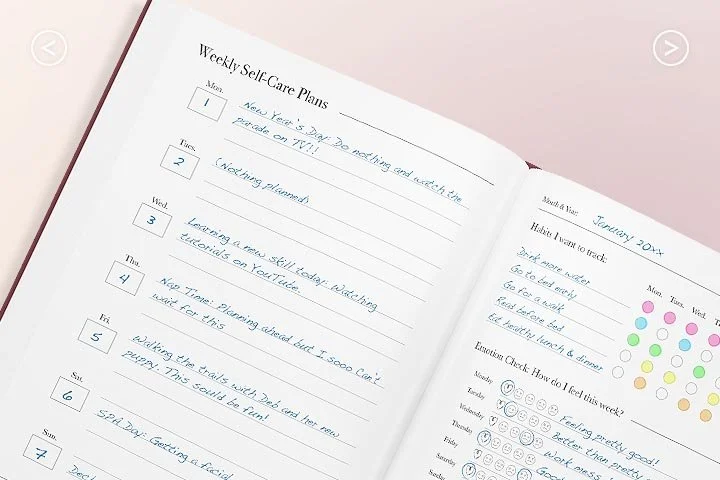 Weekly Self-Care Plans
Mon.
1
New Year's Day: Do nothing and watch the
parade on TV!!
Tues.
2
(Nothing planned)
Wed.
3
Learning a new skill today: Watching
tutorials on YouTube.
Thu.
4
Nap Time: Planning ahead but I sooo can't
wait for this
Fri.
5
Walking the trails with Deb and her new
puppy. This sould be fun!
Sat.
6
SPA Day: Getting a facial
Sun.
7
Month & Year:
January 20XX
Habits I want to track:
Mon. Tues. Wed.
Drink more water
Go to bed early
Go for a walk
Read before bed
Eat healthy lunch & dinner
Emotion Check: How do I feel this week?
Monday
Feeling pretty good!
Tuesday
Better than pretty
Wednesday
Work mess
Thursday
Good
Friday
Saturday
Sunday